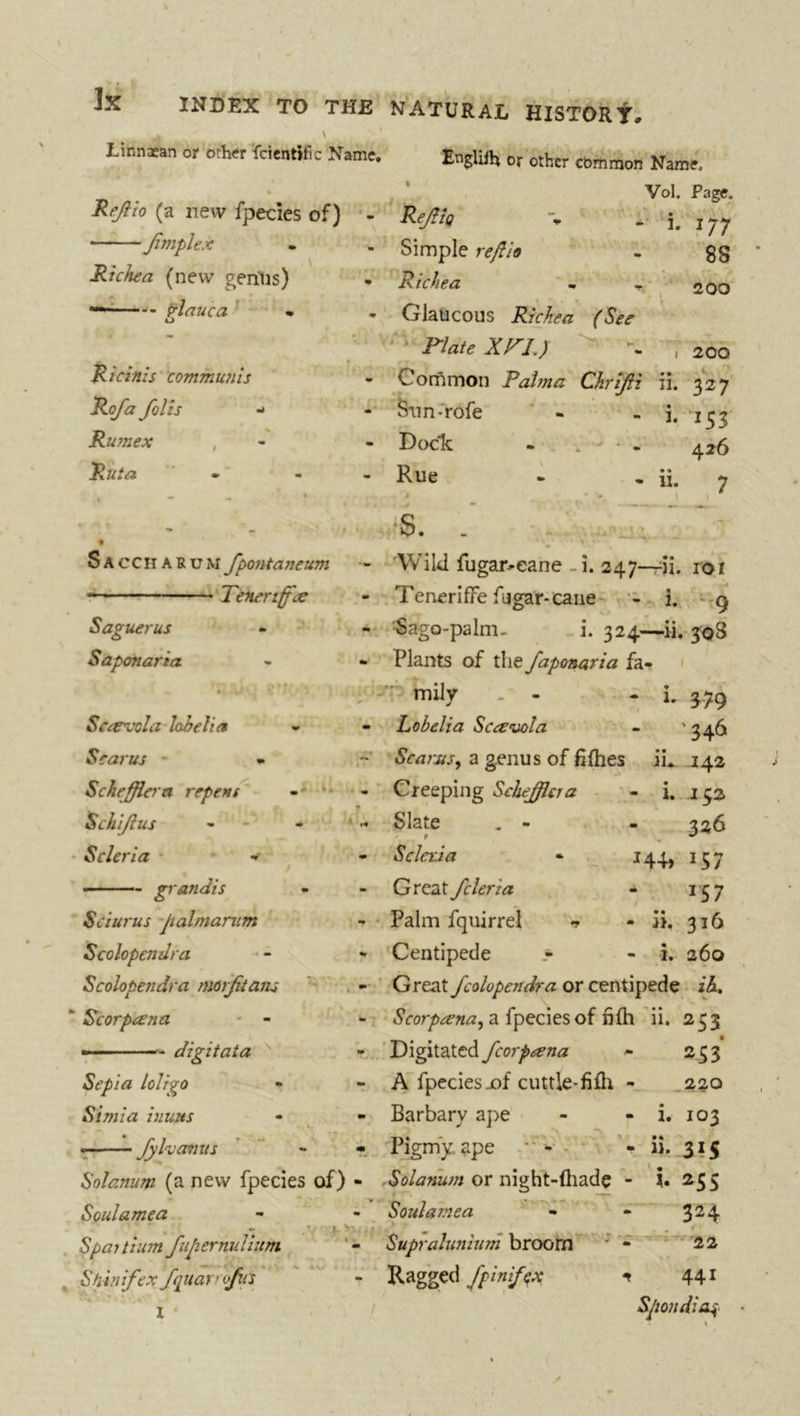 lx INDEX TO THE NATURAL HISTORY.
Linnæan or other ſcientific Name. Engliſh or other common Name.
Vol. Page.
Reſtio (a new ſpecies of) - Reſtio - - i. 177
—— ſimplex - - Simple reſtio - 88
Richea (new genus) - Richea - - 200
—— glauca - - Glaucous Richea (See
Plate XVI.) - 200
Ricinis communis - Common Palma Chriſti ii. 327
Roſa ſolis - - Sun-roſe - - i. 153
Rumex - - Dock - - 426
Ruta - - - Rue - - ii. 7
S.
SACCHARUM ſpontaneum - Wild ſugar-cane - i. 247—ii. 101
—— Teneriffæ - Teneriffe ſugar-cane - i. 9
Saguerus - - Sago-palm - i. 324—ii. 308
Saponaria - - Plants of the ſaponaria fa-
mily - - - i. 379
Scævola lobelia - - Lobelia Scævola - 346
Scarus - - Scarus, a genus of fiſhes ii. 142
Schefflera repens - - Creeping Schefflera - i. 152
Schiſtus - - - Slate - - - 326
Scleria - - Scleria - 144, 157
—— grandis - - Great ſcleria - 157
Sciurus palmarum - Palm ſquirrel - - ii. 316
Scolopendra - - Centipede - - i. 260
Scolopendra morſitans - Great ſcolopendra or centipede ib.
Scorpæna - - Scorpæna, a ſpecies of fiſh ii. 253
—— digitata - Digitated ſcorpæna - 253
Sepia loligo - - A ſpecies of cuttle-fiſh - 220
Simia inuus - - Barbary ape - - i. 103
—— ſylvanus - - Pigmy ape - - ii. 315
Solanum (a new ſpecies of) - Solanum or night-ſhade - i. 255
Soulamea - - Soulamea - - 324
Spartium ſupernulium - Supralunium broom - 22
Spinifex ſquarroſus - Ragged ſpinifex - 441
1 Spondias